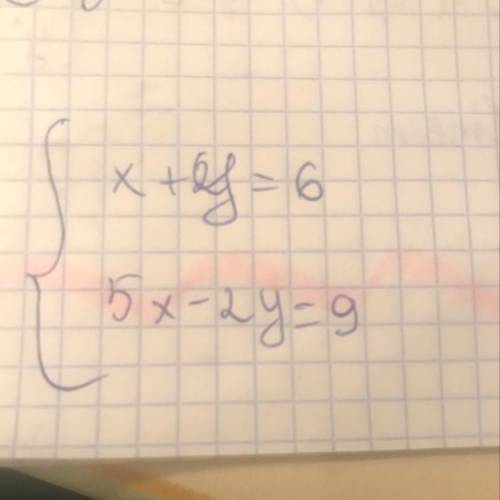 x + 2y = 6
5x - 2y = 9